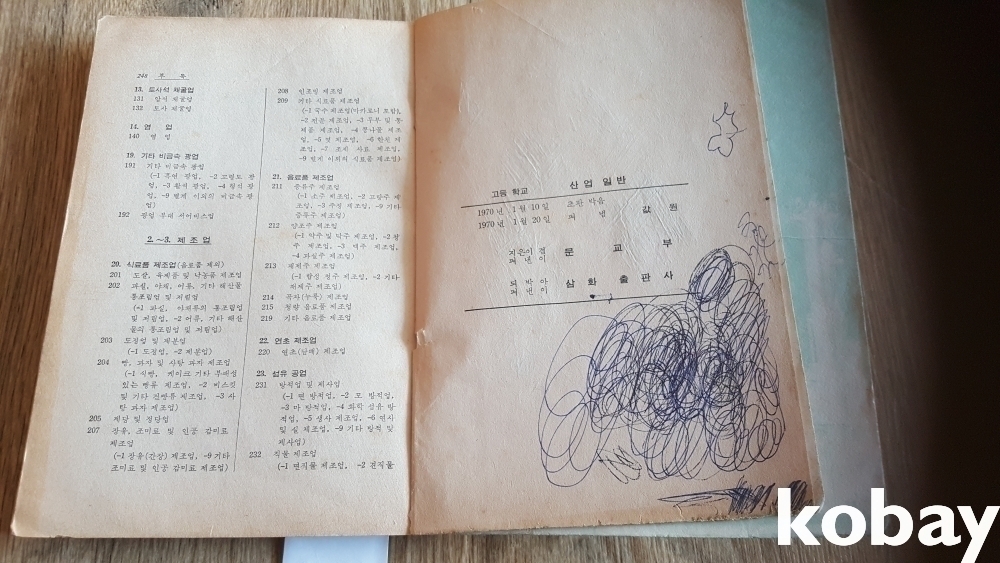 248 부 록
13. 토사석 채굴업
131 암석 채굴업
132 토사 채굴업
14. 염 업
140 염 업
19. 기타 비금속 광업
191 기타 비금속 광업
(-1 흑연 광업, -2 고령토 광
업, -3 활석 광업, -4 형석 광
업, -9 별게 이외의 비금속 광
업)
192 광업 부대 서어비스업
2.~3. 제 조 업
20. 식료품 제조업(음료품 제외)
201 도살, 육제품 및 낙농품 제조업
202 과실, 야채, 어류, 기타 해산물
통조림업 및 저림업
(-1 과실, 야채류의 통조림업
및 저림업, -2 어류, 기타 해산
물의 통조림업 및 저림업)
203 도정업 및 제분업
(-1 도정업, -2 제분업)
204 빵, 과자 및 사탕 과자 제조업
(-1 식빵, 케이크 기타 부패성
있는 빵류 제조업, -2 비스킷
및 기타 건빵류 제조업, -3 사
탕 과자 제조업)
205 제당 및 정당업
207 장유, 조미료 및 인공 감미료
제조업
(-1 장유(간장) 제조업, -9 기타
조미료 및 인공 감미료 제조업)
208 인조빙 제조업
209 기타 식료품 제조업
(-1 국수 제조업(마카로니 포함),
-2 전분 제조업, -3 두부 및 동
제품 제조업, -4 콩나물 제조
업, -5 엿 제조업, -6 한천 제
조업, -7 조제 사료 제조업,
-9 별게 이외의 식료품 제조업)
21. 음료품 제조업
211 증류주 제조업
(-1 소주 제조업, -2 고량주 제
조업, -3 주정 제조업, -9 기타
증류주 제조업)
212 양조주 제조업
(-1 약주 및 탁주 제조업, -2 청
주 제조업, -3 맥주 제조업,
-4 과실주 제조업)
213 재제주 제조업
(-1 합성 청주 제조업, -2 기타
재제주 제조업)
214 곡자(누룩) 제조업
215 청량 음료품 제조업
219 기타 음료품 제조업
22. 연초 제조업
220 연초(담배) 제조업
23. 섬유 공업
231 방적업 및 제사업
(-1 면 방적업, -2 모 방적업,
-3 마 방적업, -4 화학 섬유 방
적업, -5 생사 제조업, -6 연사
및 실 제조업, -9 기타 방적 및
제사업)
232 직물 제조업
(-1 면직물 제조업, -2 견직물
고등 학교 산 업 일 반
1970년 1월 10일 초판 박음
1970년 1월 20일 펴 냄 값 원
지은이 겸
펴 낸 이 문 교 부
되 박 아
펴 낸 이 삼 화 출 판 사
kobay